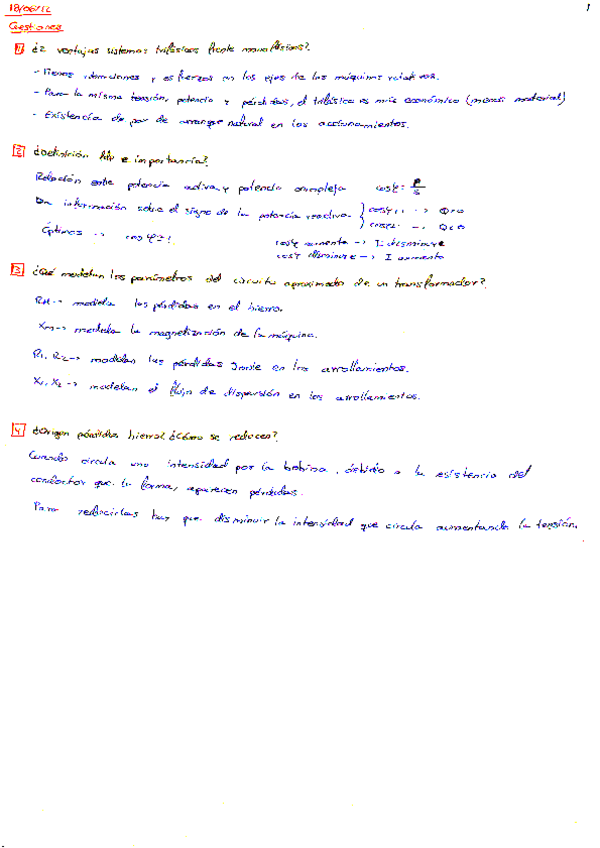 18/06/12
1
Cuestiones
1 ¿2 ventajas sistemas trifásicos frente monofásicos?
- Menos vibraciones y esfuerzos en los ejes de las máquinas rotativas.
- Para la misma tensión, potencia y pérdidas, el trifásico es más económico (menos material)
- Existencia de par de arranque natural en los accionamientos.
2 ¿Definición fdp e importancia?
Relación entre potencia activa y potencia compleja cosφ = P/S
Da información sobre el signo de la potencia reactiva.
Óptimos -> cosφ = 1
cosφ aumenta -> I disminuye
cosφ disminuye -> I aumenta
3 ¿Qué modelan los parámetros del circuito aproximado de un transformador?
-> modela las pérdidas en el hierro.
Xm -> modela la magnetización de la máquina.
R1, R2 -> modelan las pérdidas Joule en los arrollamientos.
X1, X2 -> modelan el flujo de dispersión en los arrollamientos.
4 ¿Origen pérdidas hierro? ¿Cómo se reducen?
Cuando circula una intensidad por la bobina, debido a la resistencia del
conductor que la forma, aparecen pérdidas.
Para reducirlas hay que disminuir la intensidad que circula aumentando la tensión.